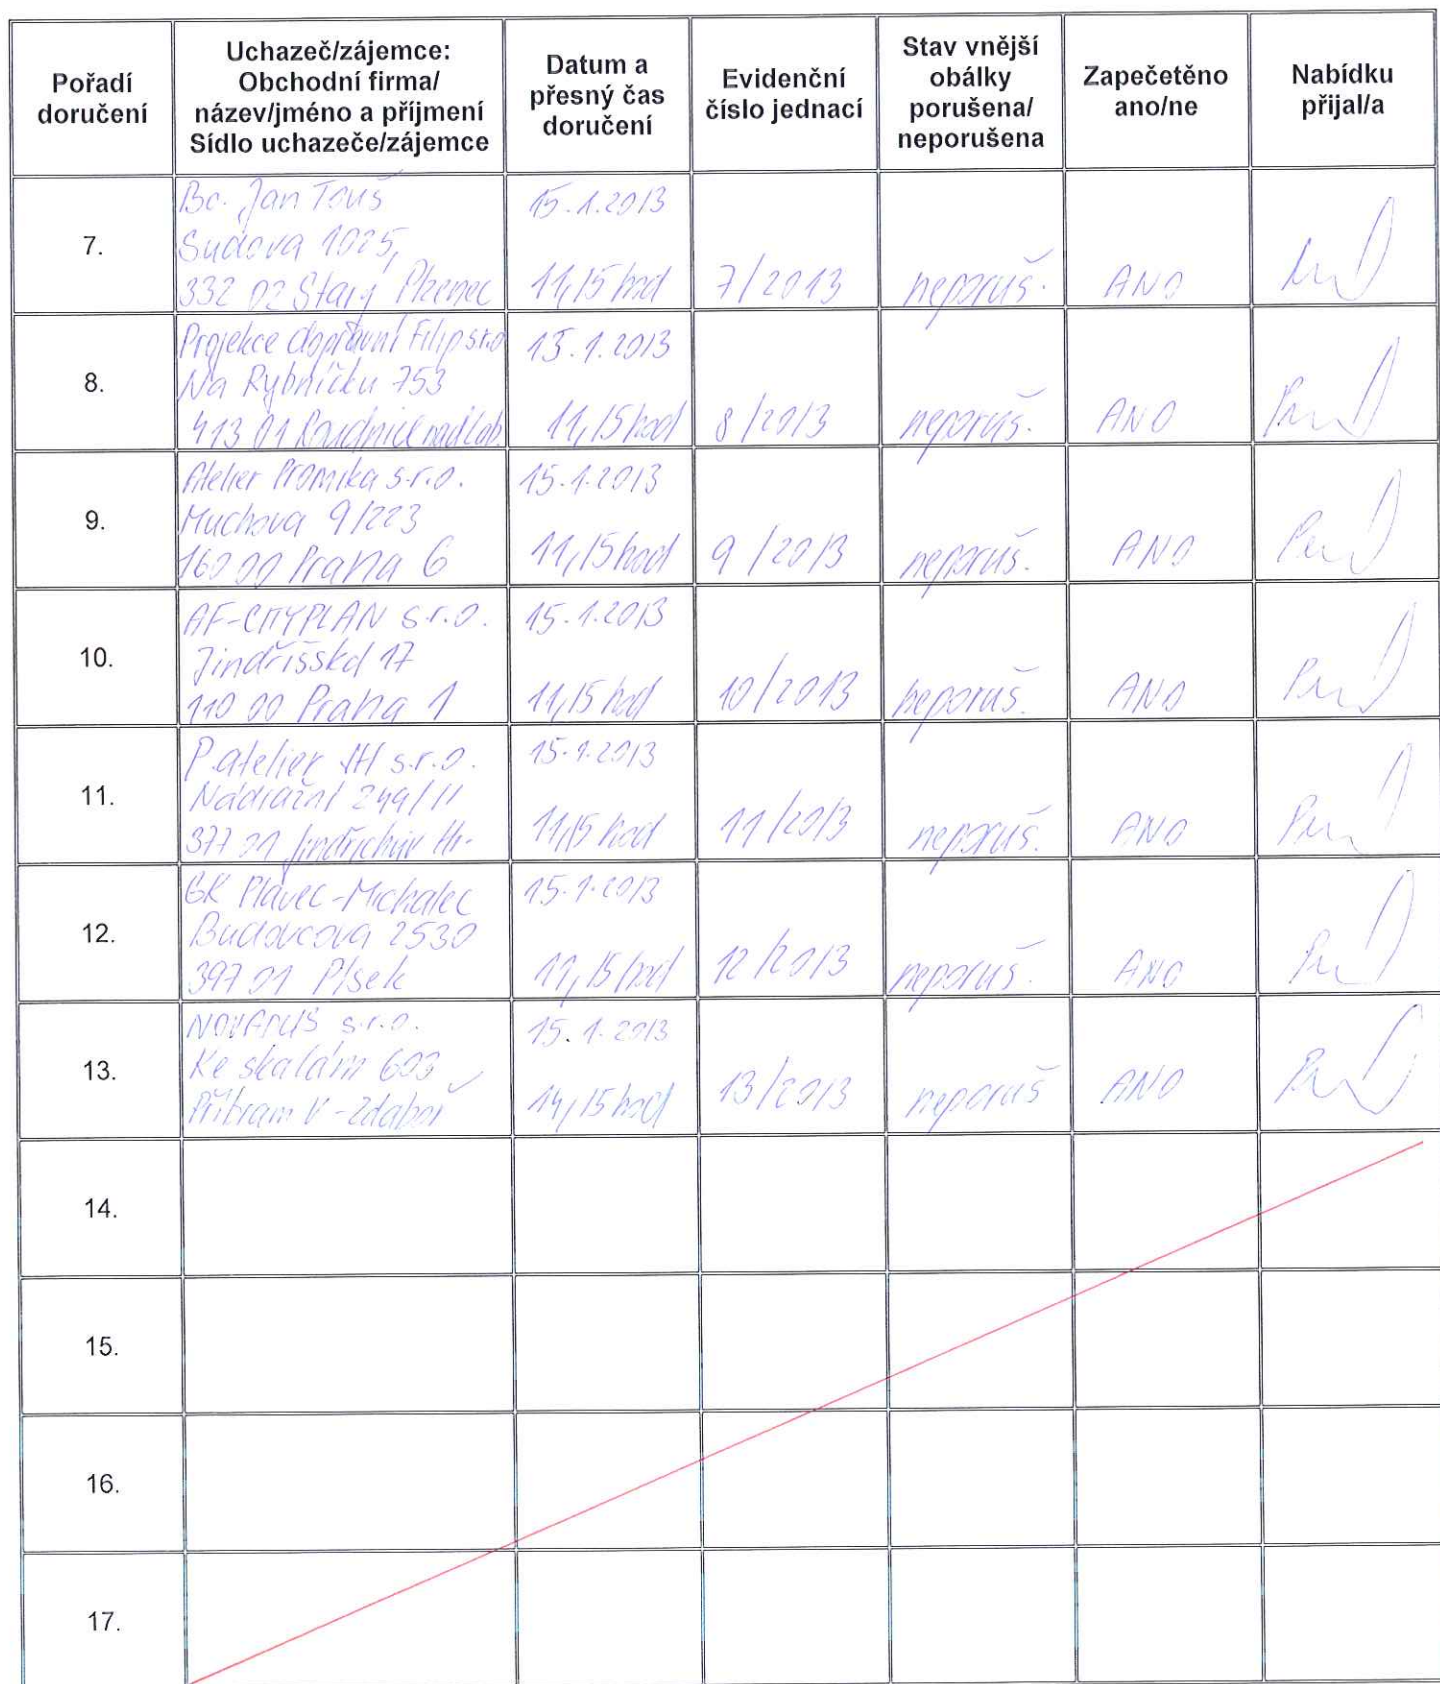 Pořadí
doručení
Uchazeč/zájemce:
Obchodní firma/
název/jméno a příjmení
Sídlo uchazeče/zájemce
Datum a
přesný čas
doručení
Evidenční
číslo jednací
Stav vnější
obálky
porušena/
neporušena
Zapečetěno
ano/ne
Nabídku
přijal/a
7.
Bc. Jan Touš
Sudova 1025,
332 02 Starý Plzenec
15.1.2013
11,15 hod
7/2013
neporuš.
ANO
8.
Projekce dopravní Filip s.r.o
Na Rybníčku 753
413 01 Roudnice nad Lab.
15.1.2013
11,15 hod
8/2013
neporuš.
ANO
9.
Atelier Promika s.r.o.
Muchova 9/223
160 00 Praha 6
15.1.2013
11,15 hod
9/2013
neporuš.
ANO
10.
AF-CITYPLAN s.r.o.
Jindřišská 17
110 00 Praha 1
15.1.2013
11,15 hod
10/2013
neporuš.
ANO
11.
P.atelier JH s.r.o.
Nádražní 249/II
377 01 Jindřichův Hr.
15.1.2013
11,15 hod
11/2013
neporuš.
ANO
12.
GK Plavec-Michalec
Budovcova 2530
397 01 Písek
15.1.2013
11,15 hod
12/2013
neporuš.
ANO
13.
s.r.o.
Ke skalám 603
Příbram V - Zdaboř
15.1.2013
14,15 hod
13/2013
neporuš
ANO
14.
15.
16.
17.